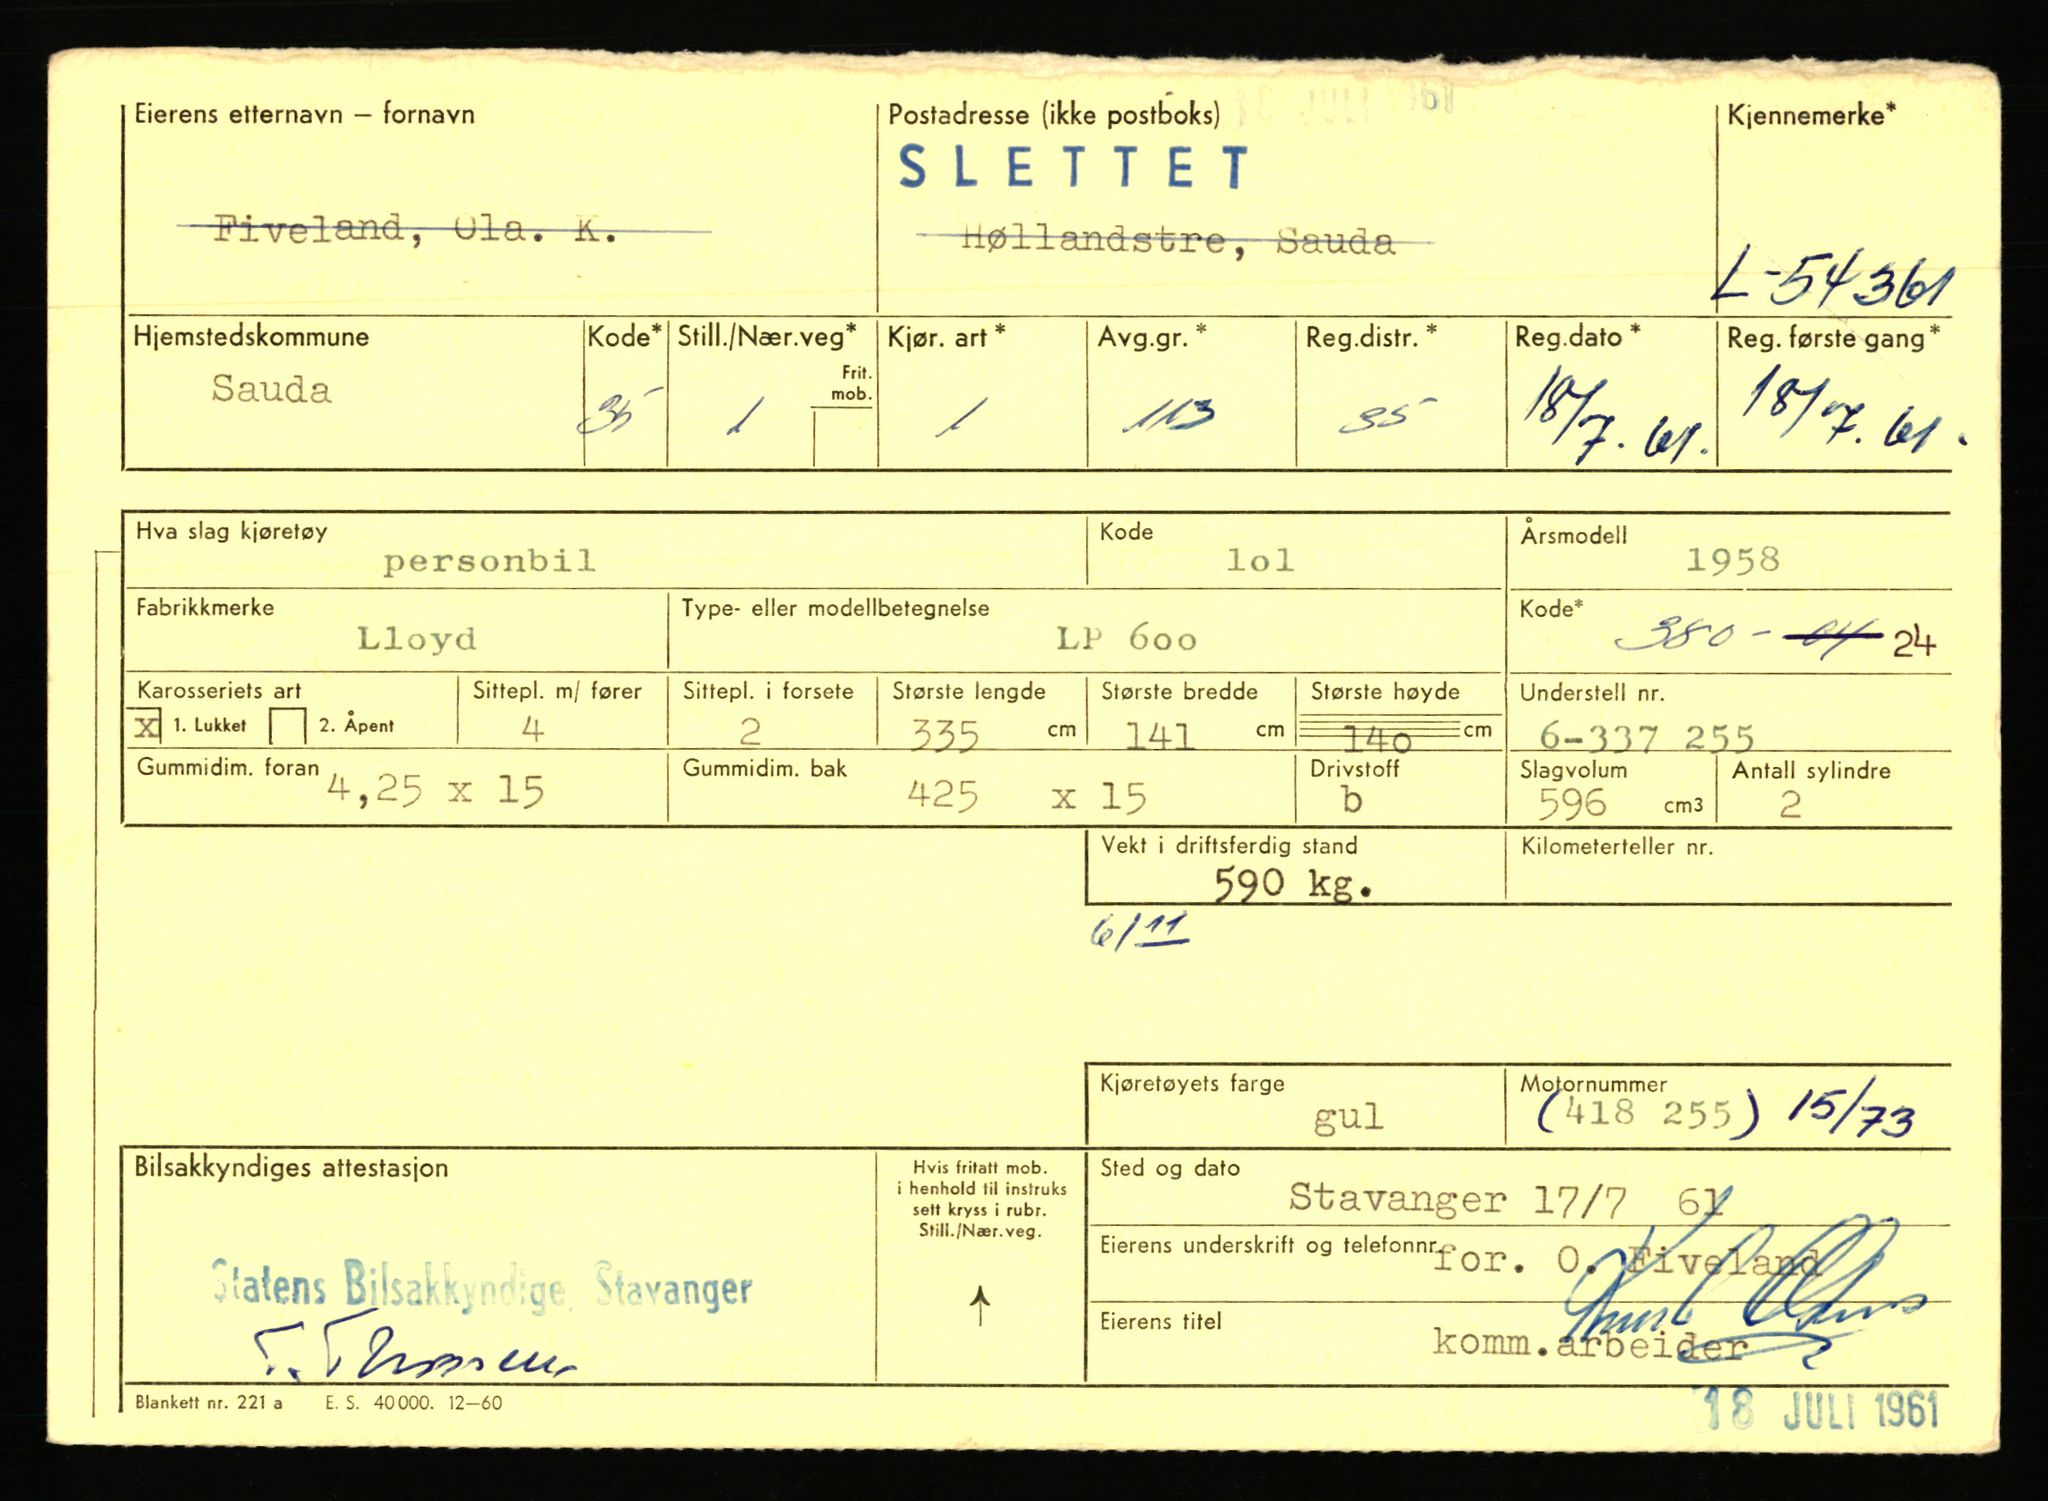 Eierens etternavn – fornavn
Postadresse (ikke postboks)
Kjennemerke*
SLETTET
Fiveland, Ola. K.
Høllandstre, Sauda
L-54361
Hjemstedskommune
Kode*
Still./Nær.veg*
Kjør. art*
Avg.gr.*
Reg.distr.*
Reg.dato*
Reg. første gang*
Frit.
mob.
Sauda
35
1
1
113
35
18/7. 61.
18/7. 61.
Hva slag kjøretøy
personbil
Kode
lol
Årsmodell
1958
Fabrikkmerke
Lloyd
Type- eller modellbetegnelse
LP 6oo
Kode*
380- 04 24
Karosseriets art
X 1. Lukket 2. Åpent
Sittepl. m/ fører
4
Sittepl. i forsete
2
Største lengde
335 cm
Største bredde
141 cm
Største høyde
14o cm
Understell nr.
6-337 255
Gummidim. foran
4,25 x 15
Gummidim. bak
425 x 15
Drivstoff
b
Slagvolum
596 cm3
Antall sylindre
2
Vekt i driftsferdig stand
590 kg.
Kilometerteller nr.
6/11
Kjøretøyets farge
gul
Motornummer
(418 255) 15/73
Bilsakkyndiges attestasjon
Statens Bilsakkyndige, Stavanger
Hvis fritatt mob.
i henhold til instruks
sett kryss i rubr.
Still./Nær.veg.
Sted og dato
Stavanger 17/7 61
Eierens underskrift og telefonnr.
for. O. Fiveland
Eierens titel
komm.arbeider
Blankett nr. 221 a E. S. 40 000. 12–60
18 JULI 1961